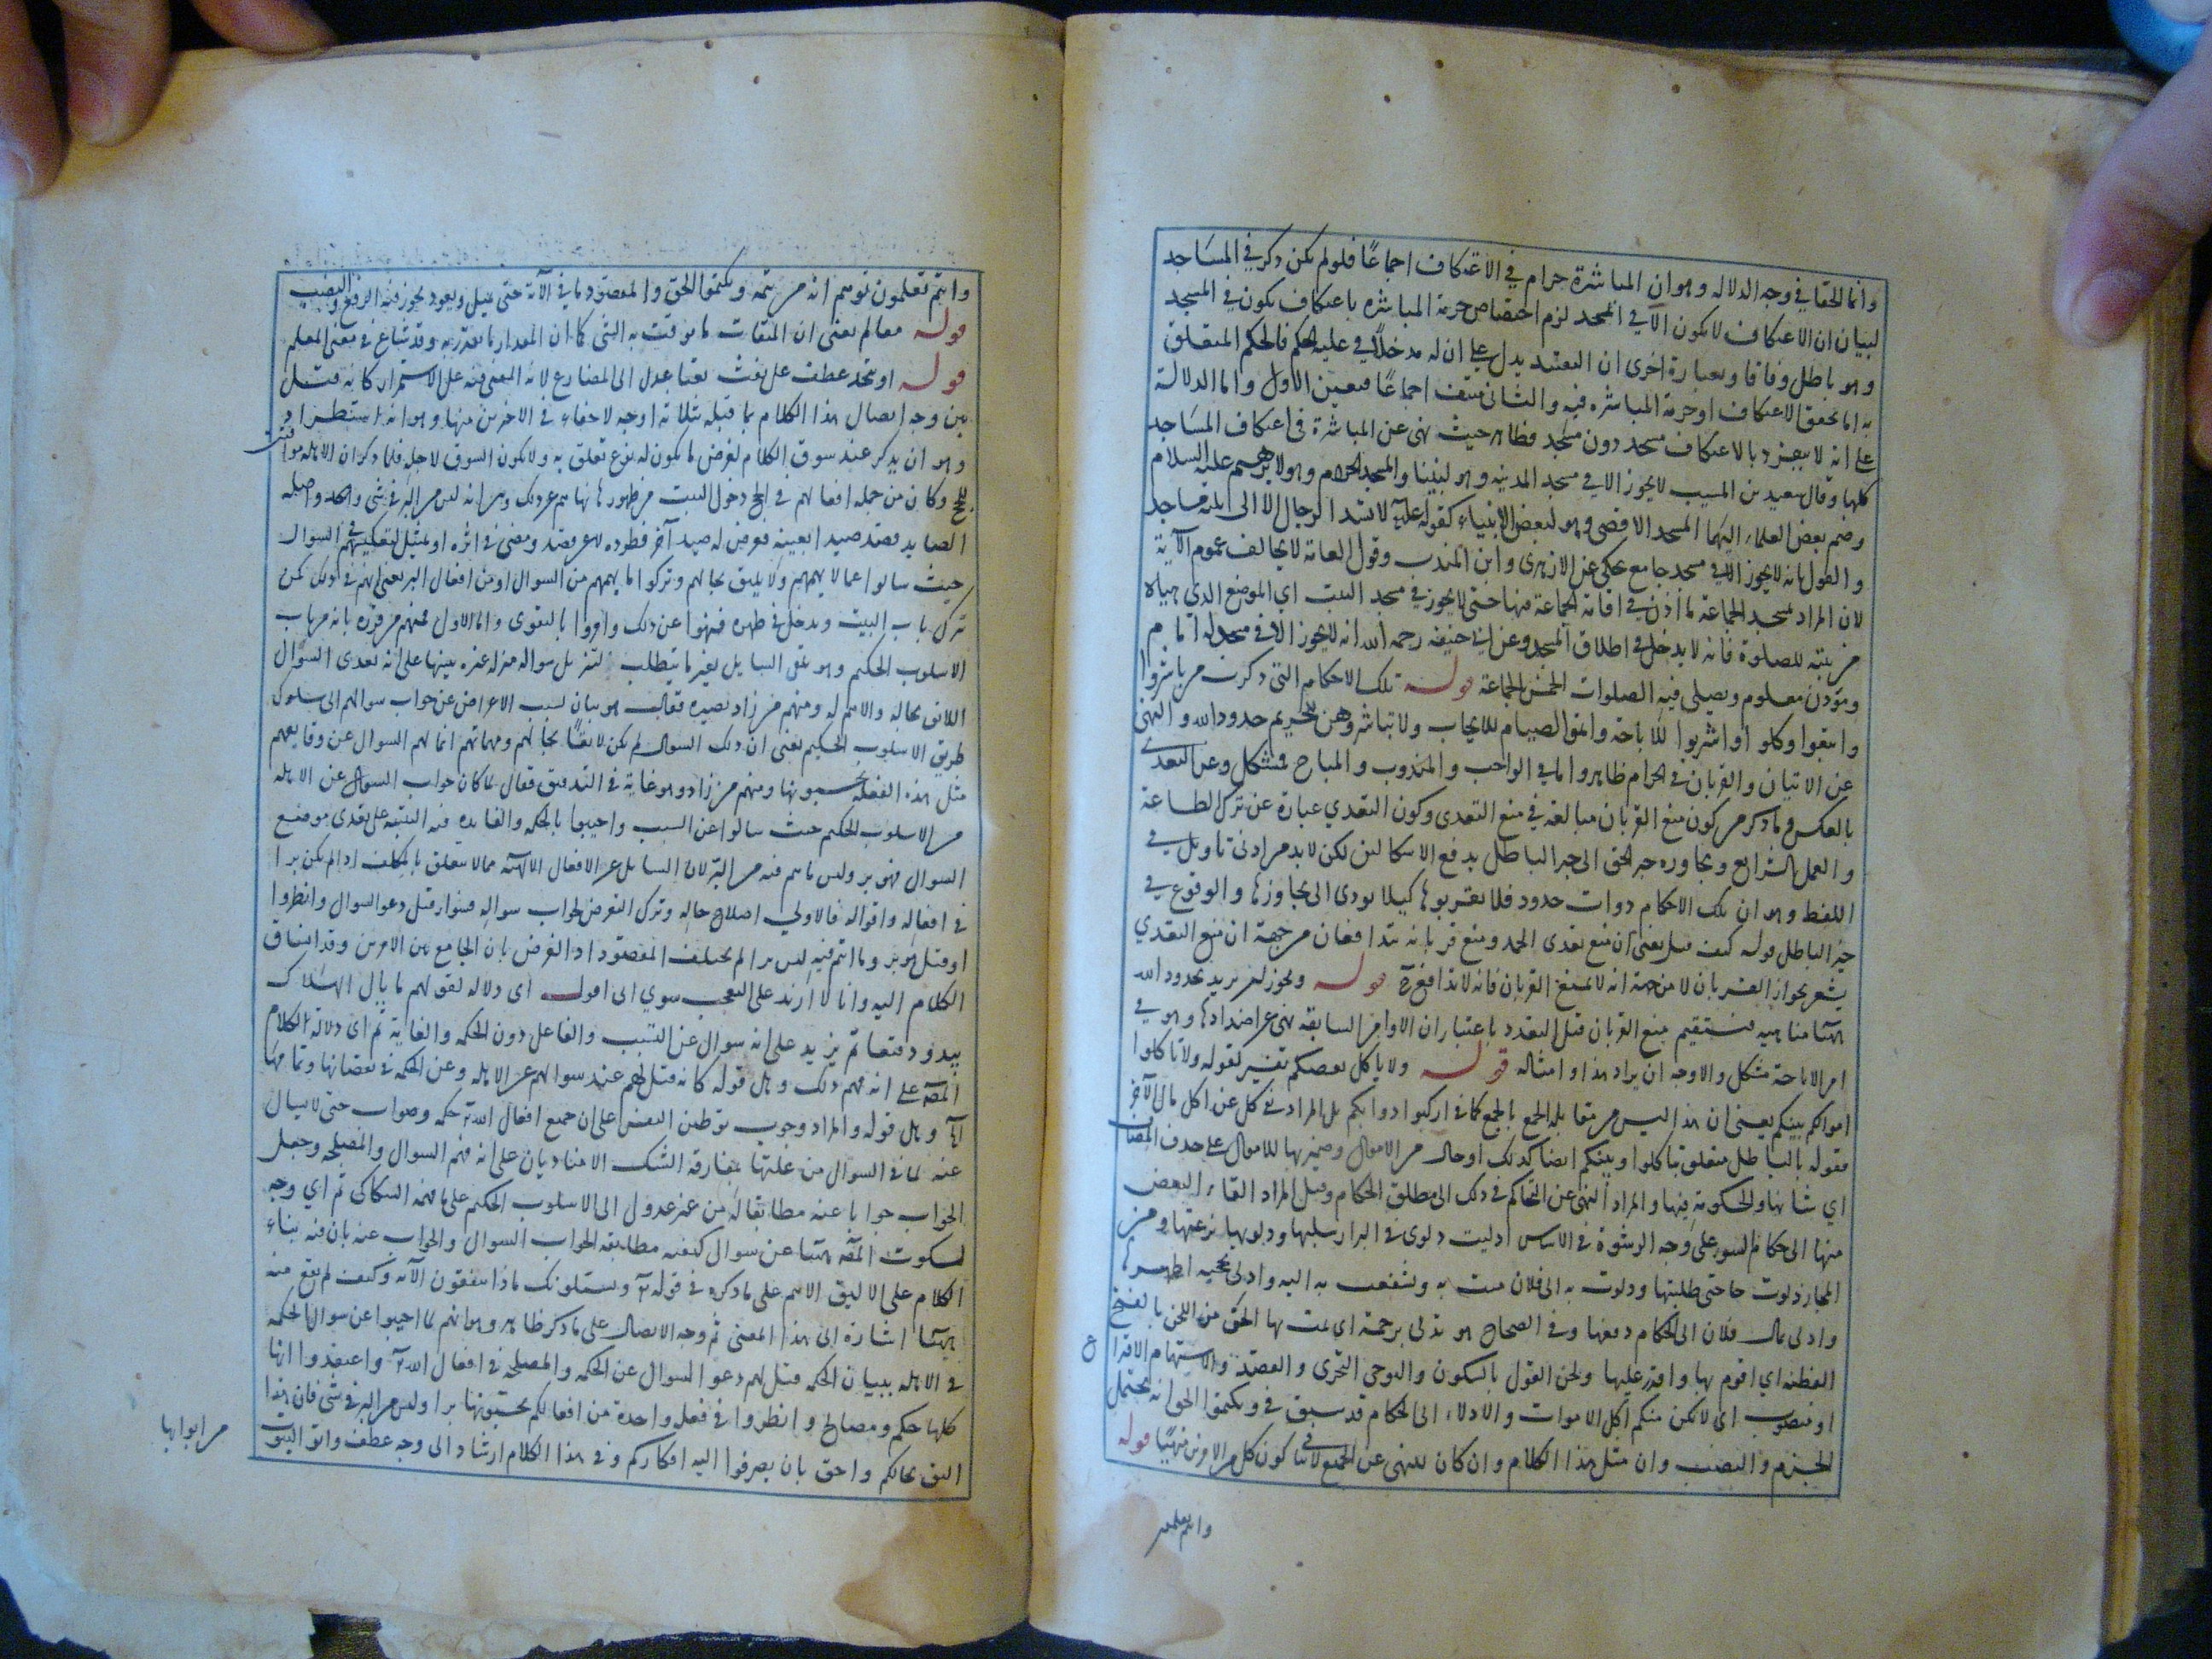 وانما الخفا في وجه الدلاله وهو ان المباشرة حرام في الاعتكاف اجماعًا فلو لم يكن ذكر في المساجد
لبيان ان الاعتكاف لا يكون الا في المسجد لزم اختصاص حرمة المباشره باعتكاف يكون في المسجد
وهو باطل وفاقا وبعبارة اخرى ان التقييد يدل على ان له مدخلًا في علية الحكم فالحكم المتعلق
به اما تحقق الاعتكاف او حرمة المباشره فيه والثانى منتف اجماعًا فتعين الاول واما الدلالة
على انه لا يتفرد بالاعتكاف مسجد دون مسجد فظاهر حيث نهى عن المباشرة فى اعتكاف المساجد
كلها وقال سعيد بن المسيب لا يجوز الا في مسجد المدينه وهو لنبينا والمسجد الحرام وهو لابرهيم عليه السلام
وضم بعض العلماء اليهما المسجد الاقصى وهو لبعض الانبياء كقوله لا تشد الرحال الا الى ثلثة مساجد
والقول بانه لا يجوز الا في مسجد جامع يحكى عن الازهرى وابن المنذر وقول العامة لا يخالف عموم الآية
لان المراد مسجد الجماعة ما أذن في اقامة الجماعة فيها حتى لا يجوز في مسجد البيت اي الموضع الذي هياه
من بيته للصلوة فانه لا يدخل في اطلاق المسجد وعن ابي حنيفه رحمه الله انه لا يجوز الا في مسجد له امام
ومؤذن معلوم ويصلى فيه الصلوات الخمس بالجماعة قوله تلك الاحكام التى ذكرت من باشروا
وابتغوا وكلوا واشربوا للاباحة واتموا الصيام للايجاب ولا تباشروهن للتحريم حدود الله والنهى
عن الاتيان والقربان في الحرام ظاهر واما في الواجب والمندوب والمباح فمشكل وعن التعدى
بالعكس وما ذكر من كون منع القربان مبالغة في منع التعدى وكون التعدي عبارة عن ترك الطاعة
والعمل بالشرايع ومجاوزه حيز الحق الى حيز الباطل يدفع الاشكالين لكن لا بد من ادنى تاويل في
اللفظ وهو ان تلك الاحكام ذوات حدود فلا تقربوها كيلا يودى الى تجاوزها والوقوع في
حيز الباطل قوله كيف قيل يعنى ان منع تعدى الحد ومنع قربانه يتدافعان من جهة ان منع التعدي
يشعر بجواز القربان لا من جهة انه لا يمنع القربان فانه لا تدافع فيه قوله ويجوز ان يريد بحدود الله
ههنا مناهيه فيستقيم منع القربان قبل التعدد باعتبار ان الاوامر السابقه نهى عن اضدادها وهو في
امر الاباحة مشكل والاوجه ان يراد هذا وامثاله قوله ولا ياكل بعضكم تفسير لقوله ولا تاكلوا
اموالكم بينكم يعنى ان هذا ليس من مقابله الجمع بالجمع كما في اركبوا دوابكم بل المراد نهى كل عن اكل مال الآخر
فقوله بالباطل متعلق بتاكلوا وبينكم ايضا كذلك او حال من الاموال وضمير بها للاموال على حذف المضاف
اي شانها والحكومة فيها والمراد النهى عن التحاكم في ذلك الى مطلق الحكام وقيل المراد القاء البعض
منها الى حكام السوء على وجه الرشوة في الاساس ادليت دلوى في البئر ارسلتها ودلوتها نزعتها ومن
المجاز دلوت حاجتى طلبتها ودلوت به الى فلان متت به وتشفعت به اليه وادلى بحجته اظهرها
وادلى بمال فلان الى الحكام دفعها وفي الصحاح هو يدلى برحمه اي يمت بها
الفطنه اي اقوم بها واقدر عليها ولحن القول بالسكون والتوخى التحرى والقصد والاستهام الاقتراع
او منصوب اى لا يكن منكم اكل الاموال والادلاء الى الحكام قد سبق في وتكتموا الحق انه يحتمل
الجزم والنصب وان مثل هذا الكلام وان كان للنهى عن الجمع لا ينافى كون كل من الامرين منهيًا قوله
وانتم تعلمون
وانتم تعلمون توهم انه من تتمة وتكتموا الحق والمقصود ما في الآية حتى قيل ويعود يجوز فيه الرفع والنصب
قوله معالم يعنى ان الميقات ما يوقت به الشى كما ان المقدار ما يقدر به وقد شاع في معنى المعلم
قوله
بين وجه اتصال هذا الكلام بما قبله بثلاثة اوجه لا خفاء في الاخرين منها وهو انه استطراد
وهو ان يذكر عند سوق الكلام لغرض ما يكون له نوع تعلق به ولا يكون السوق لاجله فلما ذكر ان الاهله مواقيت
للحج وكان من جمله افعالهم في الحج دخول البيت من ظهورها نهاهم عن ذلك وبين انه ليس من البر في شى واصله
الصايد قصد صيدا بعينه فعرض له صيد آخر فطرده لا عن قصد ومضى في اثره او تمثيل لتعكيسهم في السوال
حيث سالوا عما لا يهمهم ولا يليق بحالهم وتركوا ما يهمهم من السوال او من افعال البر يعنى انهم في ذلك كمن
ترك باب البيت ودخل في ظهره فنهوا عن ذلك وامروا بالتقوى واما الاول فمنهم من قرره بانه من باب
الاسلوب الحكيم وهو تلقى السايل بغير ما يتطلب بتنزيل سواله منزلة غيره تنبيها على انه تعدى السوال
اللايق بحاله والاهم له ومنهم من زاد بصيره فقال هو بيان لسبب الاعراض عن جواب سوالهم الى سلوك
طريق الاسلوب الحكيم يعنى ان ذلك السوال لم يكن لائقًا بحالهم ومهماتهم انما لهم السوال عن وقايعهم
مثل هذه الفعله يحسبونها ومنهم من زاد وهو غاية في التدقيق فقال لما كان جواب السوال عن الاهله
من الاسلوب الحكيم حيث سالوا عن السبب واجيبوا بالحكمه والفايده فيه التنبيه على تعدى موضع
السوال فهو بر وليس ما هم فيه من البر لان السايل عن الافعال الالهية مما لا يتعلق بالمكلف اذا لم يكن برا
في افعاله واقواله فالاولى اصلاح حاله وترك التعرض لجواب سواله
او قيل هو بر وما انتم فيه ليس برا لم يختلف المقصود اذ الغرض بيان الجامع بين الامرين وقد انساق
الكلام اليه وانا لا ازيد على التعجب سوى ان اقول اى دلاله لقولهم ما بال الهلاك
يبدو دقيقا ثم يزيد على انه سوال عن السبب والفاعل دون الحكمه والغاية ثم اى دلالة لكلام
المص على انه فهم ذلك وهل قوله كانه قيل لهم عند سوالهم عن الاهله وعن الحكمه في نقصانها وتمامها
وهل قوله والمراد وجوب توطين النفس على ان جميع افعال الله تع حكمه وصواب حتى لا يسال
عنه لما في السوال من غلبتها بمفارقة الشك الا مناديان على انه فهم السوال والمصلحه وجعل
الجواب جوابا عنه مطابقا له من غير عدول الى الاسلوب الحكيم على ما فهمه السكاكى ثم اي وجه
لسكوت المص ههنا عن سوال كيفيه مطابقه الجواب السوال والجواب عنه بان فيه بناء
الكلام على الاليق الاهم على ما ذكره في قوله تع ويسئلونك ماذا ينفقون الآية وكيف لم يقع منه
ههنا اشارة الى هذا المعنى ثم وجه الاتصال على ما ذكر ظاهر وهو انهم لما اجيبوا عن سوال الحكمه
في الاهله ببيان الحكمه قيل لهم دعوا السوال عن الحكمه والمصلحه في افعال الله تع واعتقدوا انها
كلها حكم ومصالح وانظروا في فعله واحدة من افعالكم تحسبونها برا وليس من البر في شى فان هذا
اليق بحالكم واحق بان يصرفوا اليه افكاركم وفي هذا الكلام ارشاد الى وجه عطف واتوا البيوت
من ابوابها